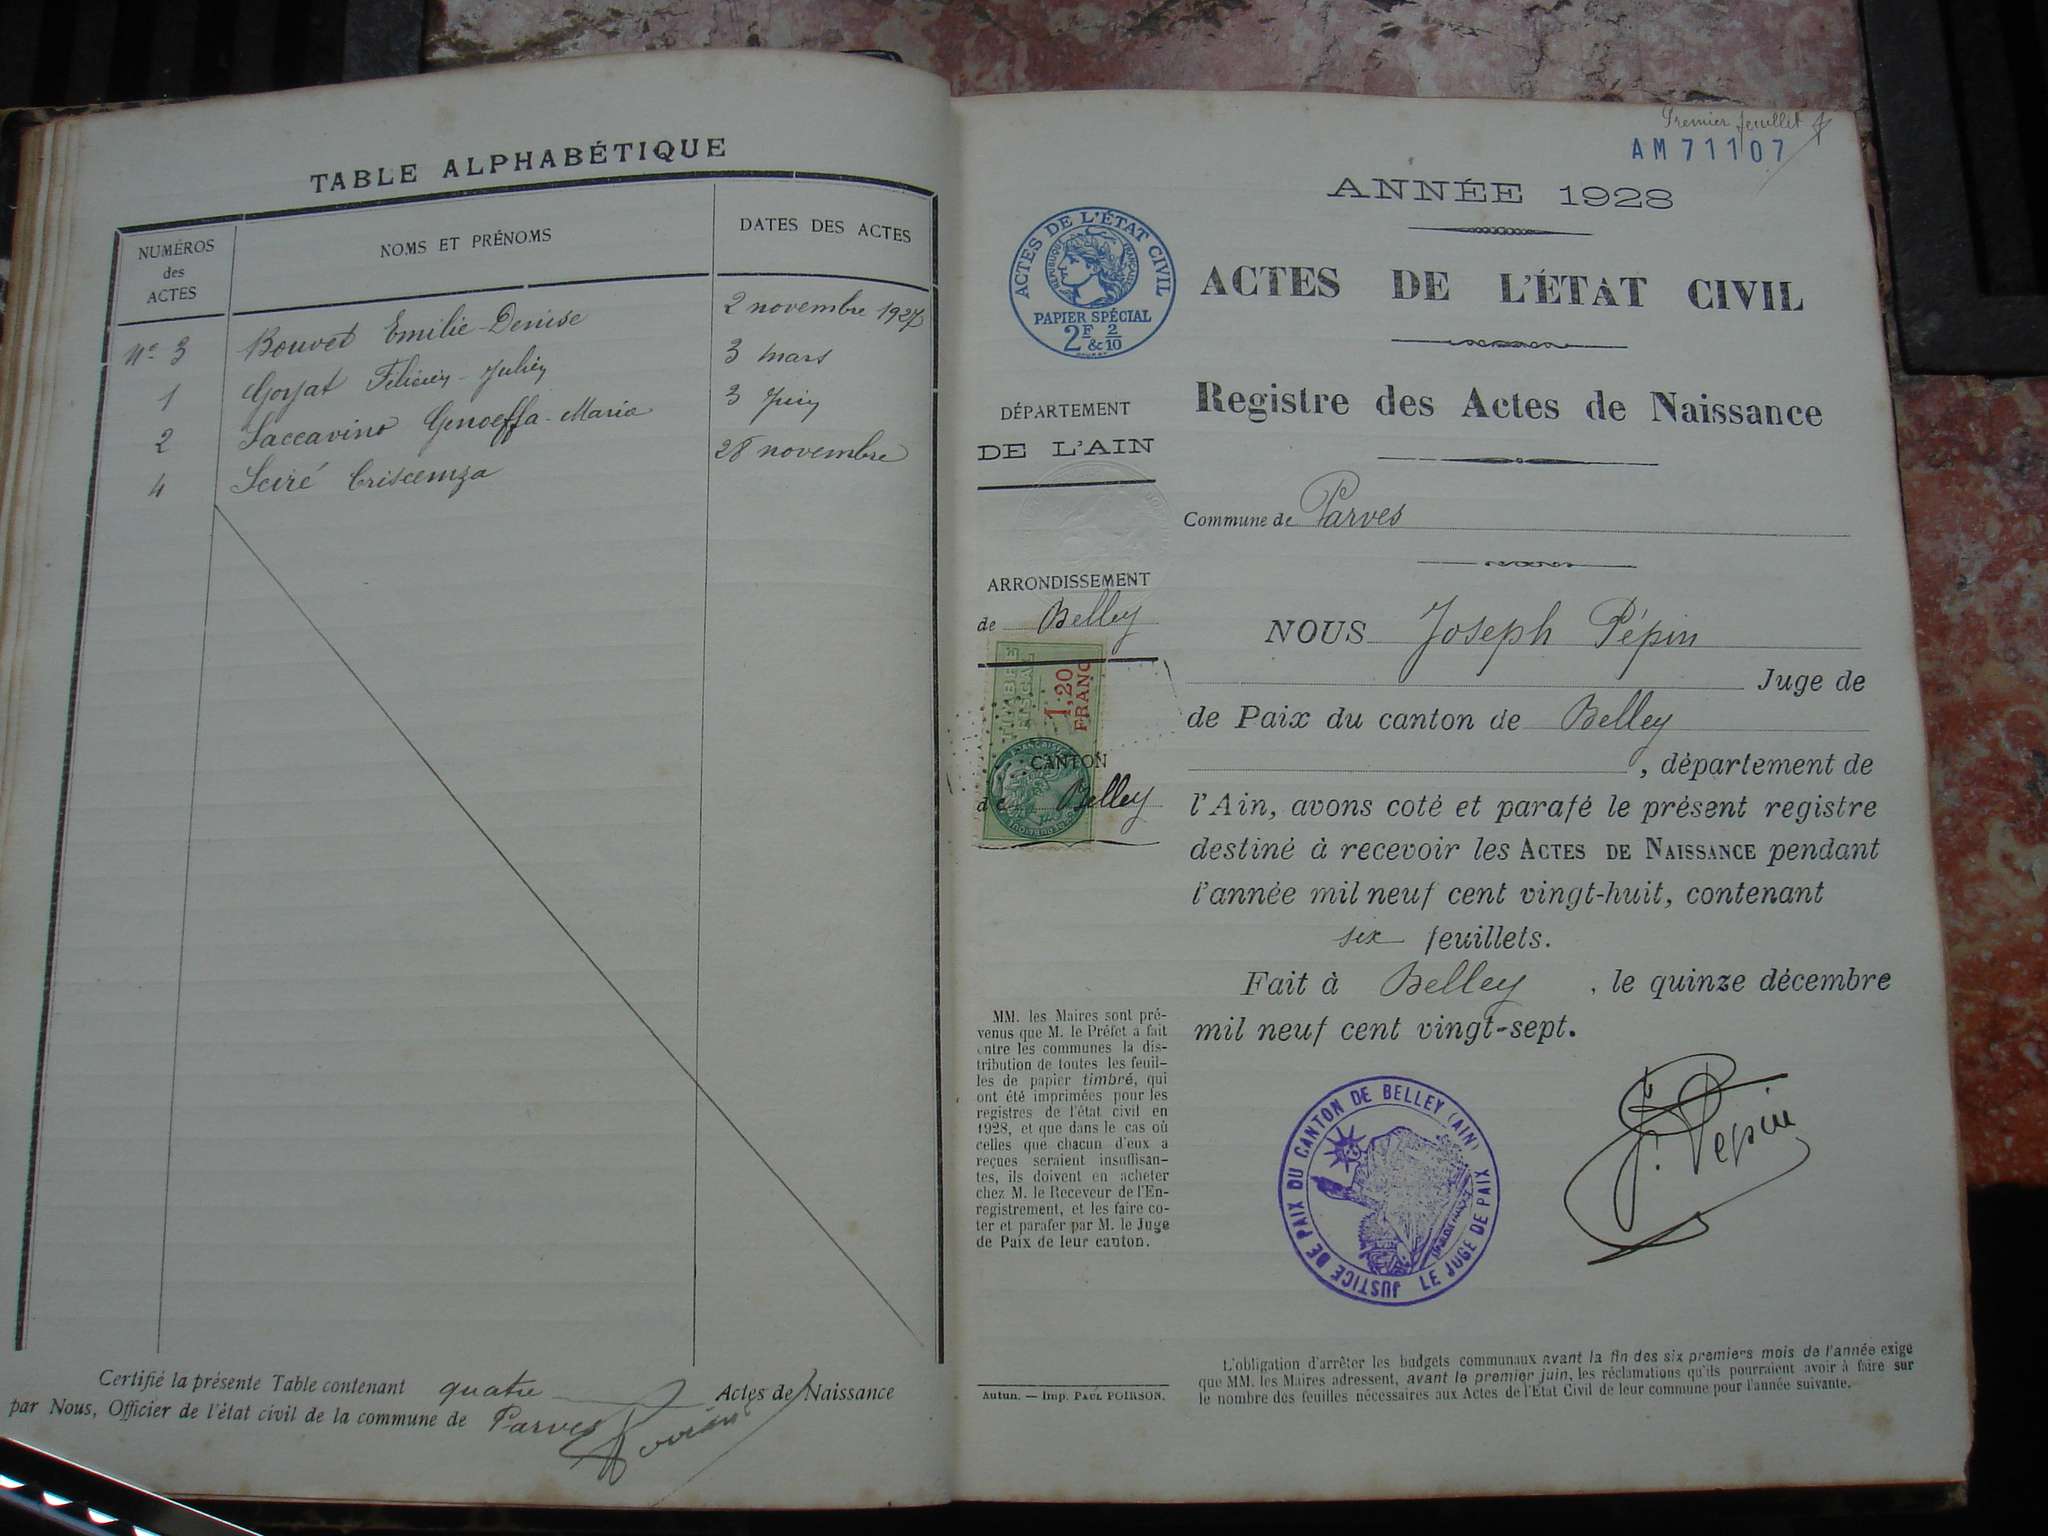 TABLE ALPHABÉTIQUE
NUMÉROS des ACTES
NOMS ET PRÉNOMS
DATES DES ACTES
N° 3 Bouvet Emilie-Denise 2 novembre 1927
1 Goyat Félicien-Julien 3 mars
2 Saccavino Genoeffa-Maria 3 Juin
4 Sciré Criscenza 28 novembre
Certifié la présente Table contenant quatre Actes de Naissance
par Nous, Officier de l'état civil de la commune de Parves
Premier feuillet
AM 71107
ANNÉE 1928
ACTES DE L'ÉTAT CIVIL
RÉPUBLIQUE FRANÇAISE
PAPIER SPÉCIAL
2F & 2/10
ACTES DE L'ÉTAT CIVIL
Registre des Actes de Naissance
DÉPARTEMENT
DE L'AIN
Commune de Parves
ARRONDISSEMENT
de Belley
TIMBRE FISCAL
1,20 FRANC
CANTON
de Belley
NOUS Joseph Pépin
Juge de
de Paix du canton de Belley
, département de
l'Ain, avons coté et parafé le présent registre
destiné à recevoir les ACTES DE NAISSANCE pendant
l'année mil neuf cent vingt-huit, contenant
six feuillets.
Fait à Belley, le quinze décembre
mil neuf cent vingt-sept.
MM. les Maires sont pré-
venus que M. le Préfet a fait
entre les communes la dis-
tribution de toutes les feuil-
les de papier timbré, qui
ont été imprimées pour les
registres de l'état civil en
1928, et que dans le cas où
celles que chacun d'eux a
reçues seraient insuffisan-
tes, ils doivent en acheter
chez M. le Receveur de l'En-
registrement, et les faire co-
ter et parafer par M. le Juge
de Paix de leur canton.
JUSTICE DE PAIX DU CANTON DE BELLEY (AIN)
LE JUGE DE PAIX
J. Pépin
Autun. — Imp. PAUL POIRSON.
L'obligation d'arrêter les budgets communaux avant la fin des six premiers mois de l'année exige
que MM. les Maires adressent, avant le premier juin, les réclamations qu'ils pourraient avoir à faire sur
le nombre des feuilles nécessaires aux Actes de l'Etat Civil de leur commune pour l'année suivante.